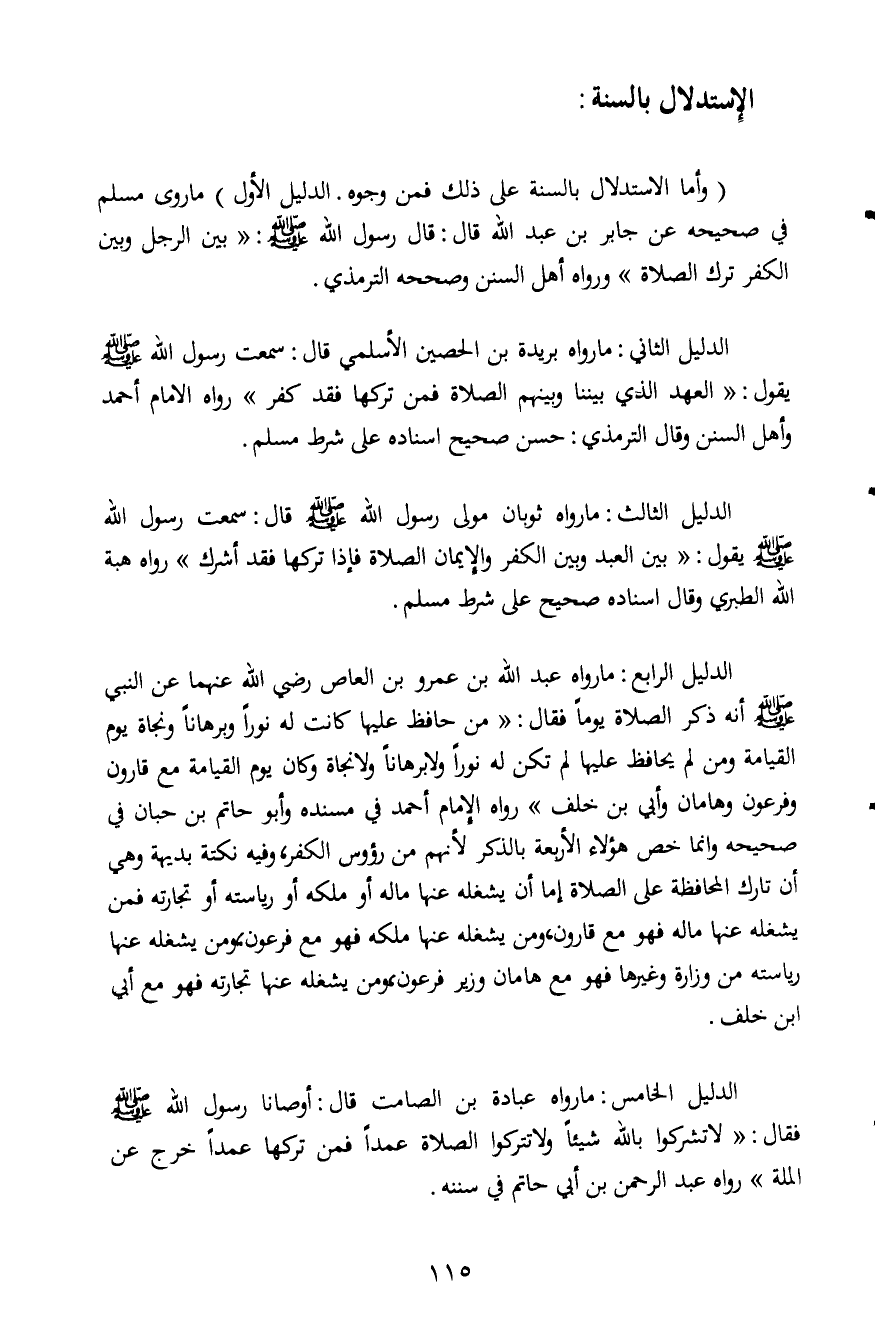 الإستدلال بالسنة :
( وأما الاستدلال بالسنة على ذلك فمن وجوه . الدليل الأول ) ماروى مسلم
في صحيحه عن جابر بن عبد الله قال : قال رسول الله ﷺ : « بين الرجل وبين
الكفر ترك الصلاة » ورواه أهل السنن وصححه الترمذي .
الدليل الثاني : مارواه بريدة بن الحصين الأسلمي قال : سمعت رسول الله ﷺ
يقول : « العهد الذي بيننا وبينهم الصلاة فمن تركها فقد كفر » رواه الامام أحمد
وأهل السنن وقال الترمذي : حسن صحيح اسناده على شرط مسلم .
الدليل الثالث : مارواه ثوبان مولى رسول الله ﷺ قال : سمعت رسول الله
ﷺ يقول : « بين العبد وبين الكفر والإيمان الصلاة فإذا تركها فقد أشرك » رواه هبة
الله الطبري وقال اسناده صحيح على شرط مسلم .
الدليل الرابع : مارواه عبد الله بن عمرو بن العاص رضي الله عنهما عن النبي
ﷺ أنه ذكر الصلاة يوماً فقال : « من حافظ عليها كانت له نوراً وبرهاناً ونجاة يوم
القيامة ومن لم يحافظ عليها لم تكن له نوراً ولابرهاناً ولانجاة وكان يوم القيامة مع قارون
وفرعون وهامان وأبي بن خلف » رواه الإمام أحمد في مسنده وأبو حاتم بن حبان في
صحيحه وانما خص هؤلاء الأربعة بالذكر لأنهم من رؤوس الكفر، وفيه نكتة بديهة وهي
أن تارك المحافظة على الصلاة إما أن يشغله عنها ماله أو ملكه أو رياسته أو تجارته فمن
يشغله عنها ماله فهو مع قارون، ومن يشغله عنها ملكه فهو مع فرعون، ومن يشغله عنها
رياسته من وزارة وغيرها فهو مع هامان وزير فرعون، ومن يشغله عنها تجارته فهو مع أبي
ابن خلف .
الدليل الخامس : مارواه عبادة بن الصامت قال : أوصانا رسول الله ﷺ
فقال : « لاتشركوا بالله شيئاً ولاتتركوا الصلاة عمداً فمن تركها عمداً خرج عن
الملة » رواه عبد الرحمن بن أبي حاتم في سننه .
١١٥